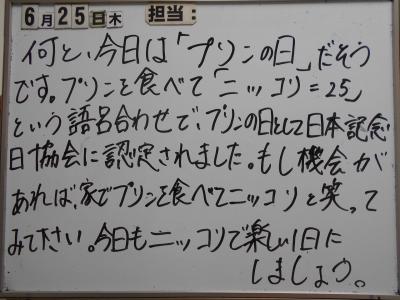 6月25日木 担当:
何と、今日は「プリンの日」だそう
です。プリンを食べて「ニッコリ=25」
という語呂合わせで、プリンの日として日本記念
日協会に認定されました。もし機会が
あれば、家でプリンを食べてニッコリと笑って
みて下さい。今日もニッコリで楽しい1日に
しましょう。